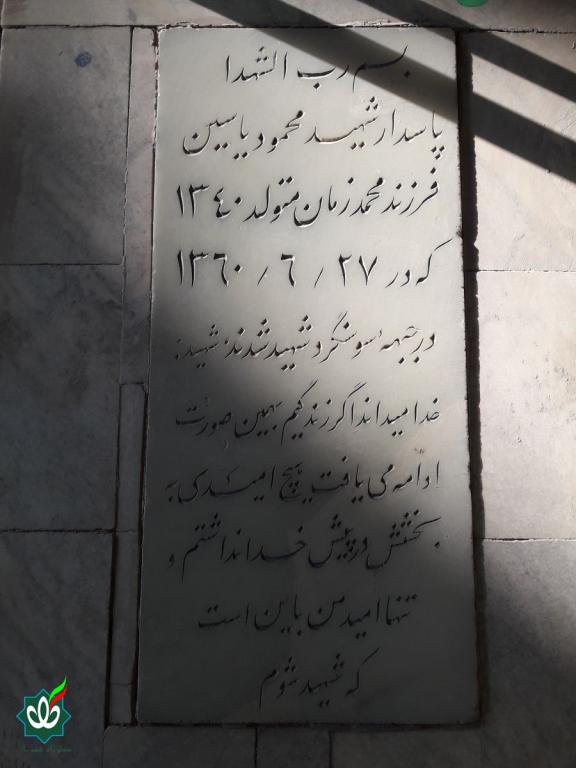 بسم رب الشهدا
پاسدار شهید محمود یاسین
فرزند محمد زمان متولد ۱۳٤۰
که در ۲۷ / ۶ / ۱۳۶۰
در جبهه سوسنگرد شهید شدند: شهید:
خدا میداند اگر زندگیم بهمین صورت
ادامه می یافت هیچ امیدی به
بخشش در پیش خدا نداشتم و
تنها امید من باین است
که شهید شوم